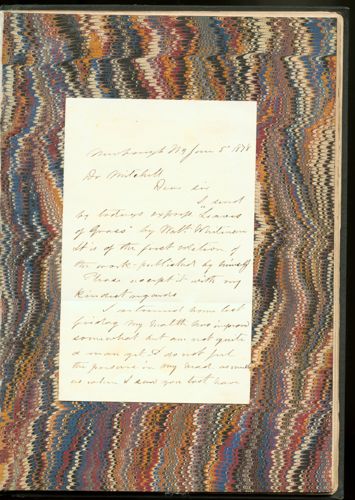 Newburgh NY June 5th 1878
Dr Mitchell
Dear sir
I send
by todays express "Leaves
of Grass" by Walt Whitman
It is of the first edition of
the work - published by himself
Please accept it with my
kindest regards
I returned home last
friday my health has improved
somewhat but am not quite
a man yet I do not feel
the pressure in my head as much
as when I saw you last have